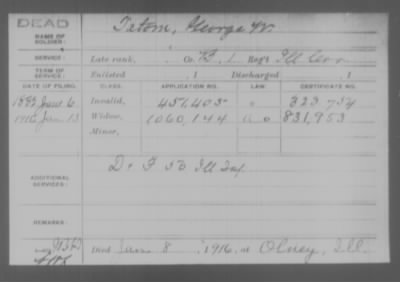 DEAD
NAME OF SOLDIER: Tetom, George W.
SERVICE: Late rank, Co. B, 1 Reg't Ill Cav
TERM OF SERVICE: Enlisted , 1 Discharged , 1
DATE OF FILING. CLASS. APPLICATION NO. LAW. CERTIFICATE NO.
1883 June 6 Invalid, 451,405 323,754
1916 Jan 13 Widow, 1060,144 831,953
Minor,
ADDITIONAL SERVICES: D + F 56 Ill Inf.
REMARKS:
Died Jan 8, 1916, at Olney, Ill.